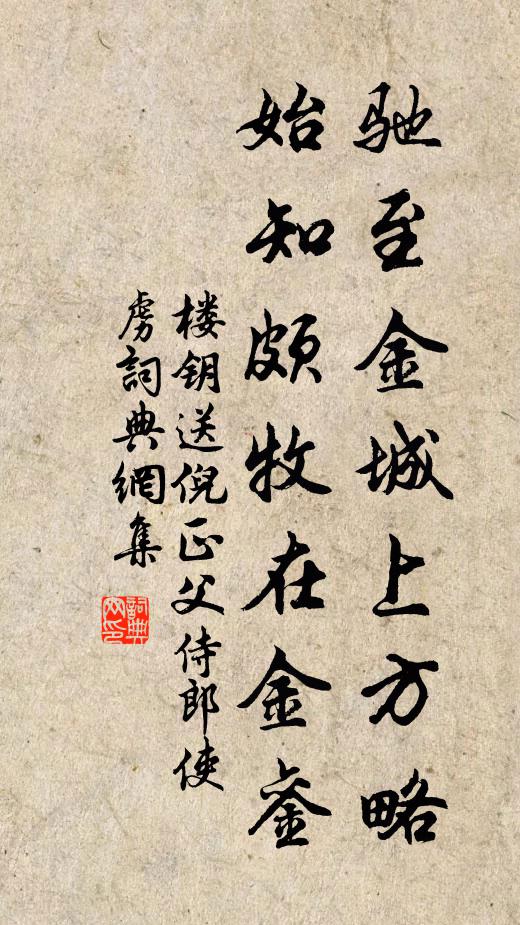 驰至金城上方略
始知颇牧在金銮
楼钥送倪正父侍郎使
虏词典網集
詞典網印